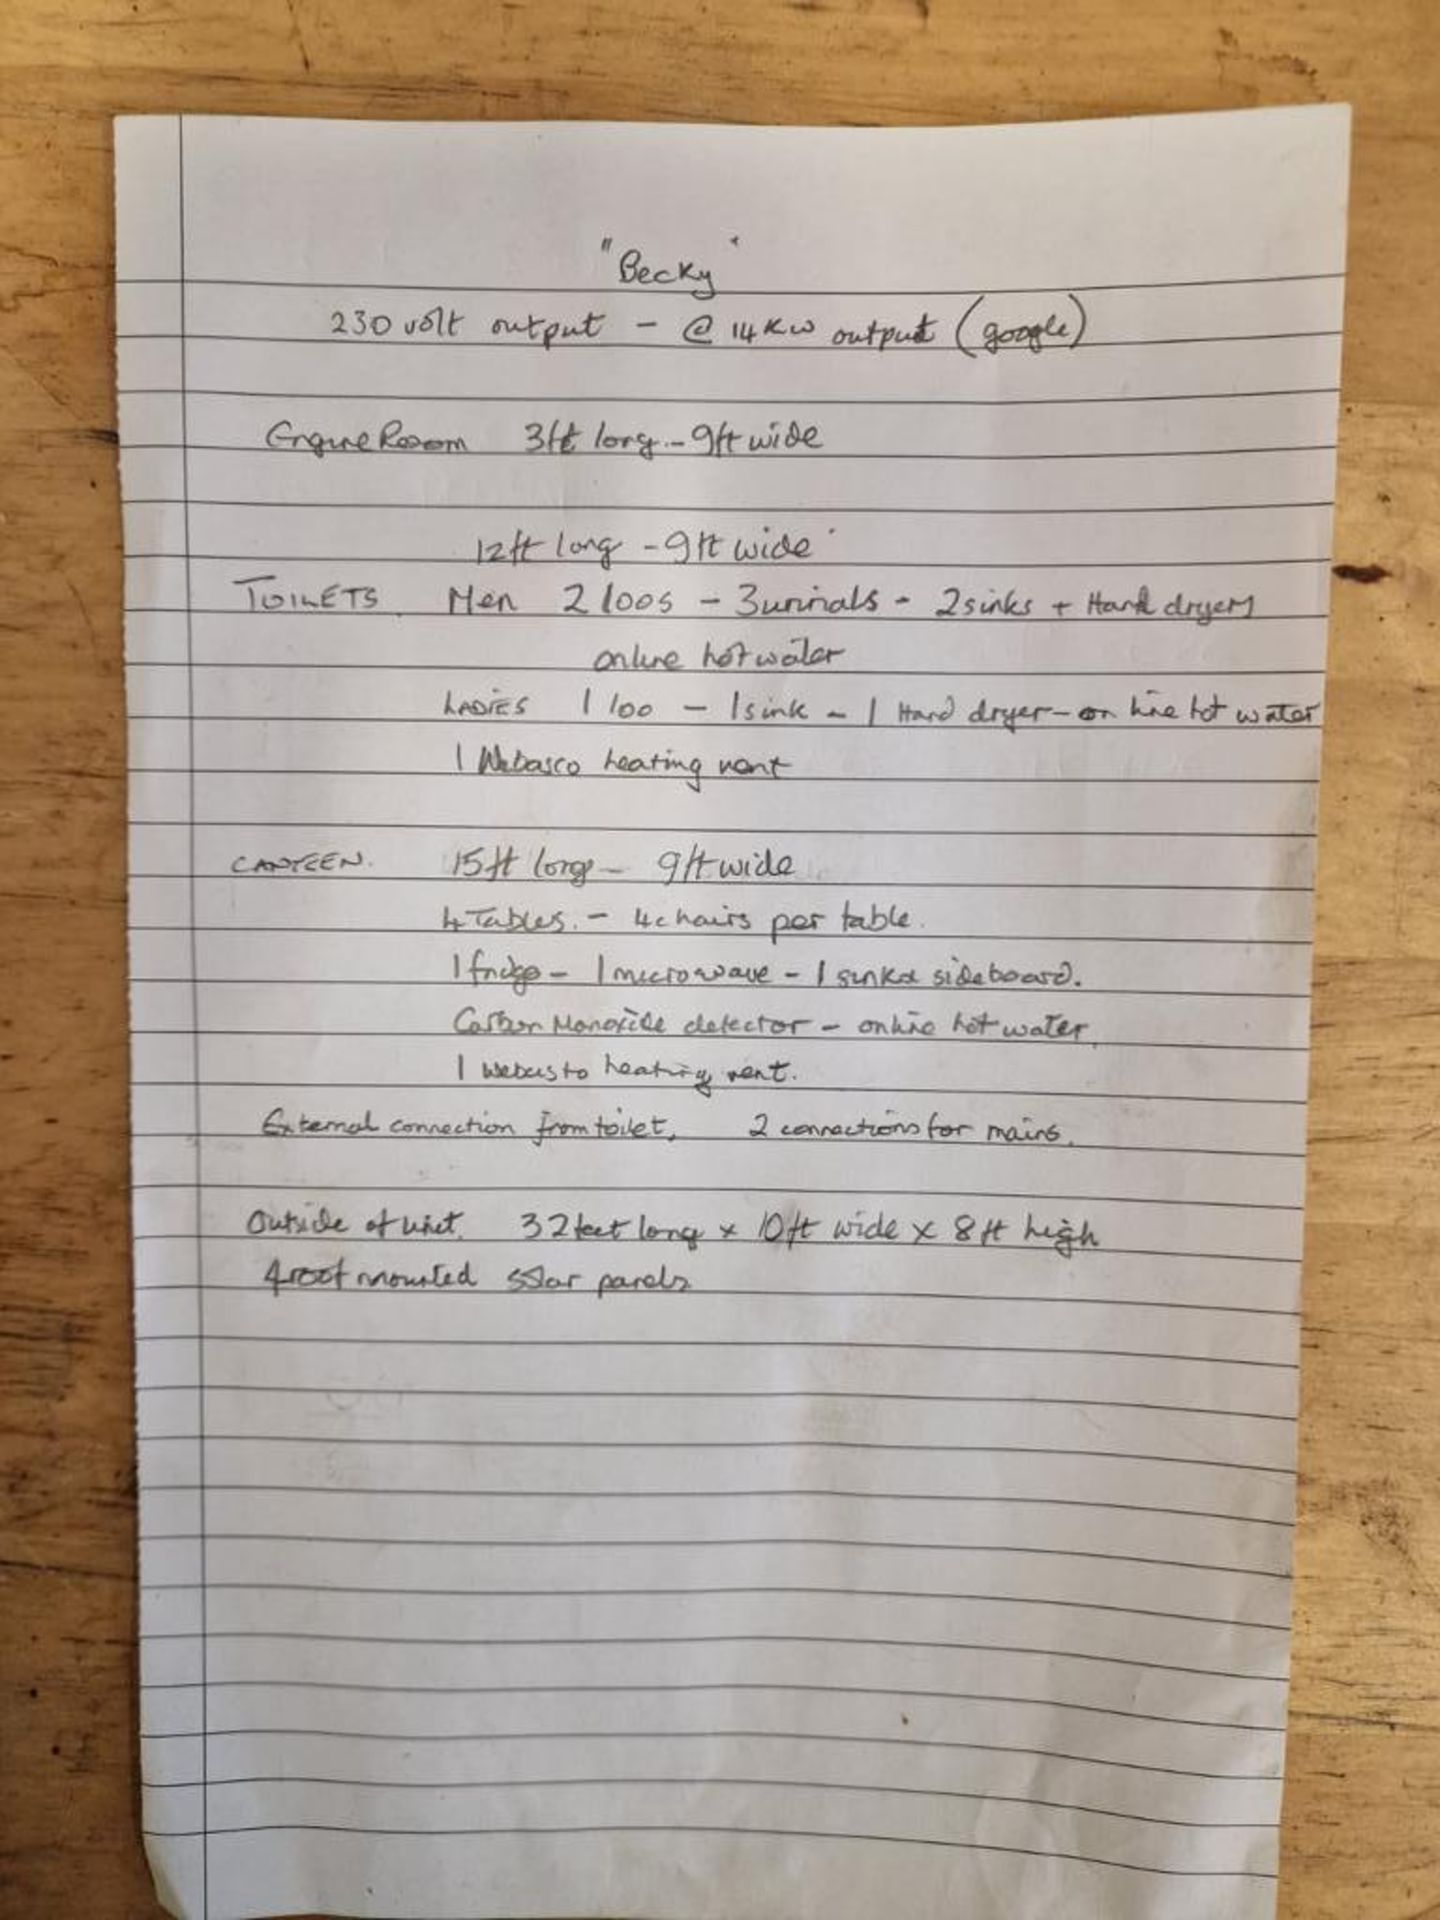 "Becky"
230 volt output - @ 14KW output (google)
Engine Room 3ft long - 9ft wide
12ft long - 9ft wide
TOILETS. Men 2 loos - 3 urinals - 2 sinks + Hand dryers
online hot water
LADIES 1 loo - 1 sink - 1 Hand dryer - on line hot water
1 Webasco heating vent
CANTEEN. 15ft long - 9ft wide
4 Tables. - 4 chairs per table.
1 fridge - 1 microwave - 1 sink & sideboard.
Carbon Monoxide detector - online hot water.
1 Webusto heating vent.
External connection from toilet, 2 connections for mains.
Outside of Unit. 32 feet long x 10ft wide x 8ft high
4 roof mounted solar panels